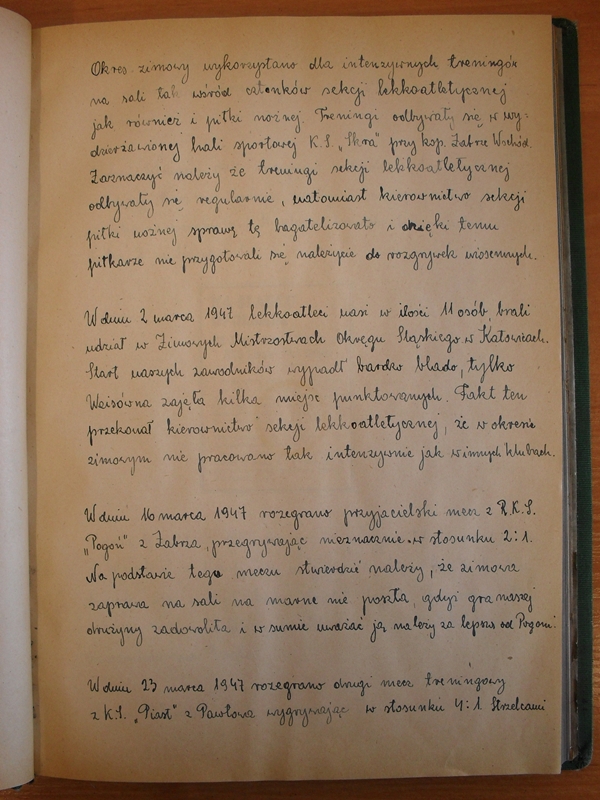 Okres zimowy wykorzystano dla intenzywnych treningów
na sali tak wśród członków sekcji lekkoatletycznej
jak również i piłki nożnej. Treningi odbywały się w wy-
dzierżawionej hali sportowej K.S. „Skra" przy kop. Zabrze Wschód.
Zaznaczyć należy że treningi sekcji lekkoatletycznej
odbywały się regularnie, natomiast kierownictwo sekcji
piłki nożnej sprawę tę bagatelizowało i dzięki temu
piłkarze nie przygotowali się należycie do rozgrywek wiosennych.
W dniu 2 marca 1947 lekkoatleci nasi w ilości 11 osób, brali
udział w Zimowych Mistrzostwach Okręgu Śląskiego w Katowicach.
Start naszych zawodników wypadł bardzo blado, tylko
Weisówna zajęła kilka miejsc punktowanych. Fakt ten
przekonał kierownictwo sekcji lekkoatletycznej, że w okresie
zimowym nie pracowano tak intenzywnie jak w innych klubach.
W dniu 16 marca 1947 rozegrano przyjacielski mecz z R.K.S.
„Pogoń" z Zabrza, przegrywając nieznacznie w stosunku 2:1.
Na podstawie tego meczu stwierdzić należy, że zimowa
zaprawa na sali na marne nie poszła, gdyż gra naszej
drużyny zadowoliła i w sumie uważać ją należy za lepszą od Pogoni.
W dniu 23 marca 1947 rozegrano drugi mecz treningowy
z K.S. „Piast" z Pawłowa wygrywając w stosunku 4:1. Strzelcami